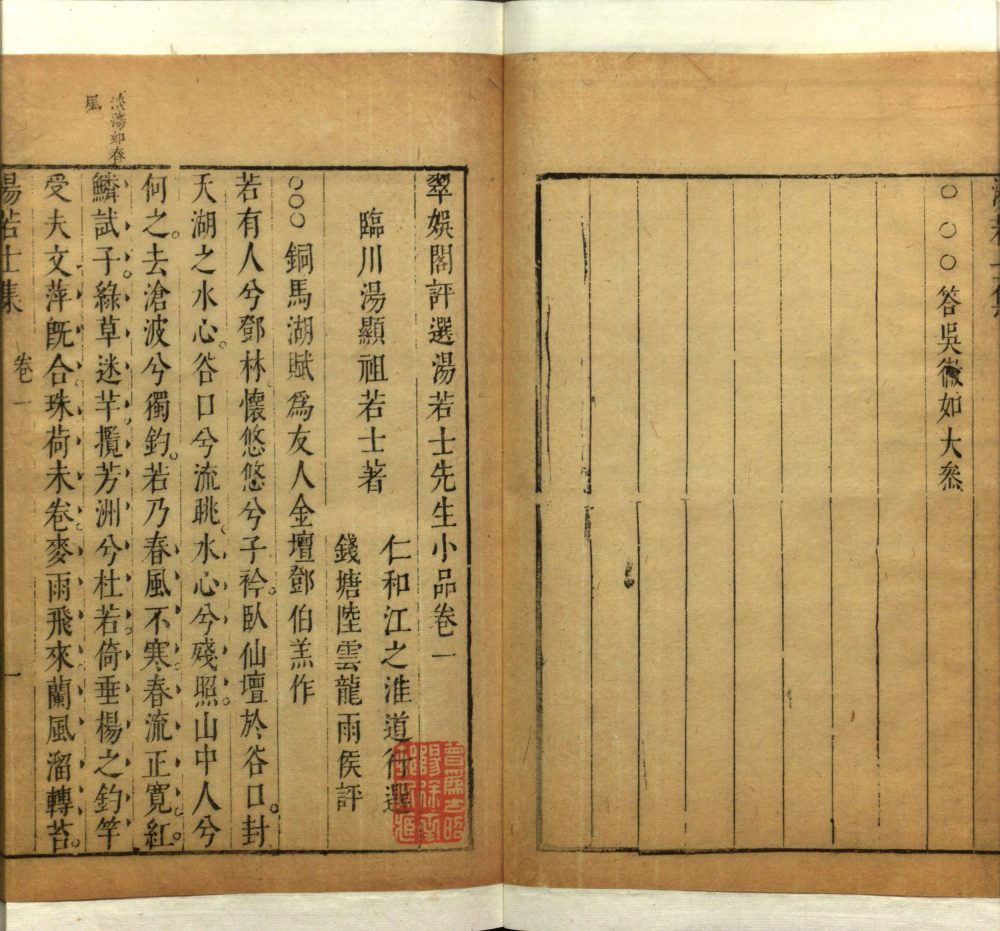 ○○○答吳薇如大叅
翠娛閣評選湯若士先生小品卷一
臨川湯顯祖若士著
仁和江之淮道行選
錢塘陸雲龍雨侯評
○○○銅馬湖賦爲友人金壇鄧伯羔作
若有人兮鄧林懷悠悠兮子衿臥仙壇於谷口。封
天湖之水心。谷口兮流眺。水心兮殘照。山中人兮
何之。去滄波兮獨釣。若乃春風不寒春流正寬。紅
鱗試子。綠草迷芊攬芳洲兮杜若倚垂楊之釣竿
受夫文萍旣合珠荷未卷麥雨飛來蘭風溜轉苔。
淡蕩如春
風
湯若士集
卷一
一